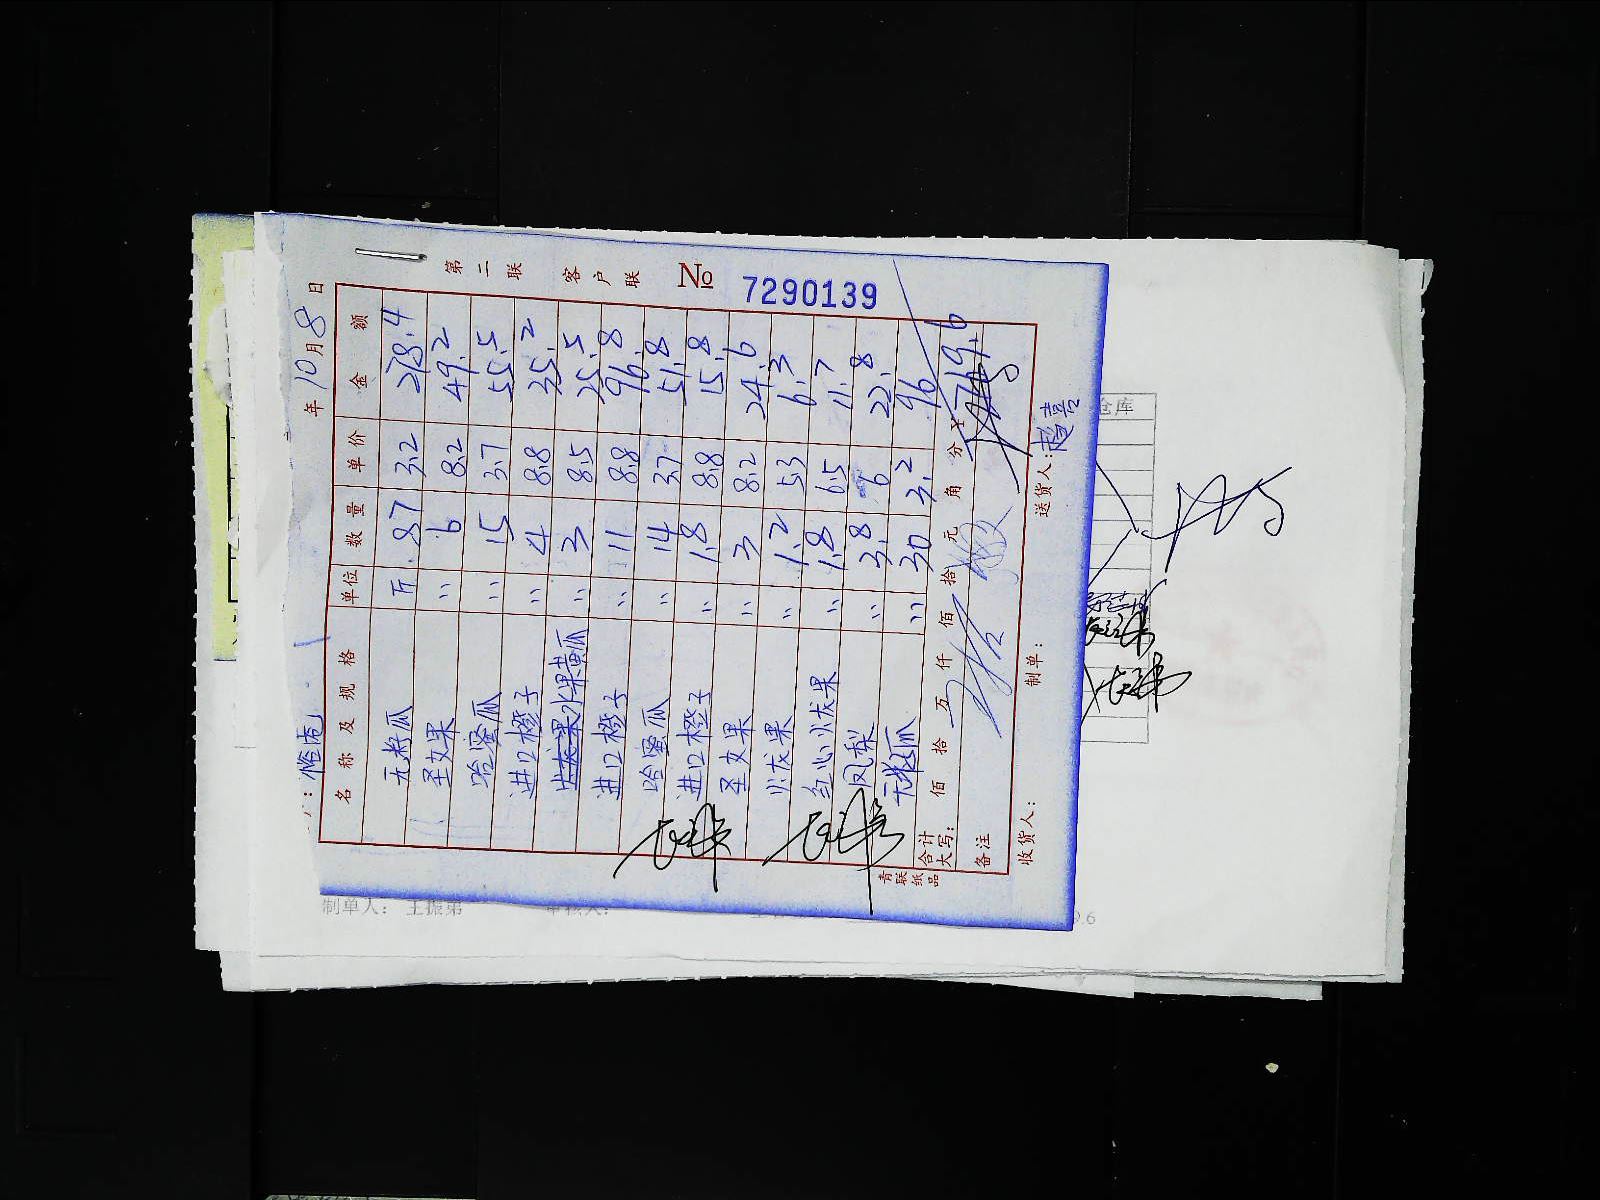 年10月8日
第二联 客户联 No 7290139
名称及规格 单位 数量 单价 金额
无籽瓜 斤 87 3.2 278.4
圣女果 〃 6 8.2 49.2
哈蜜瓜 〃 15 3.7 55.5
进口橙子 〃 4 8.8 35.2
水果黄瓜 〃 3 8.5 25.5
进口橙子 〃 11 8.8 96.8
哈蜜瓜 〃 14 3.7 51.8
进口橙子 〃 1.8 8.8 15.8
圣女果 〃 3 8.2 24.6
火龙果 〃 1.2 5.3 6.3
红心火龙果 〃 1.8 6.5 11.7
凤梨 〃 3.8 6 22.8
无籽瓜 〃 30 3.2 96
合计大写: 佰 拾 万 仟 佰 拾 元 角 分 ¥ 769.6
备注
收货人: 制单: 送货人:
青联纸品
制单人: 王振第
仓库